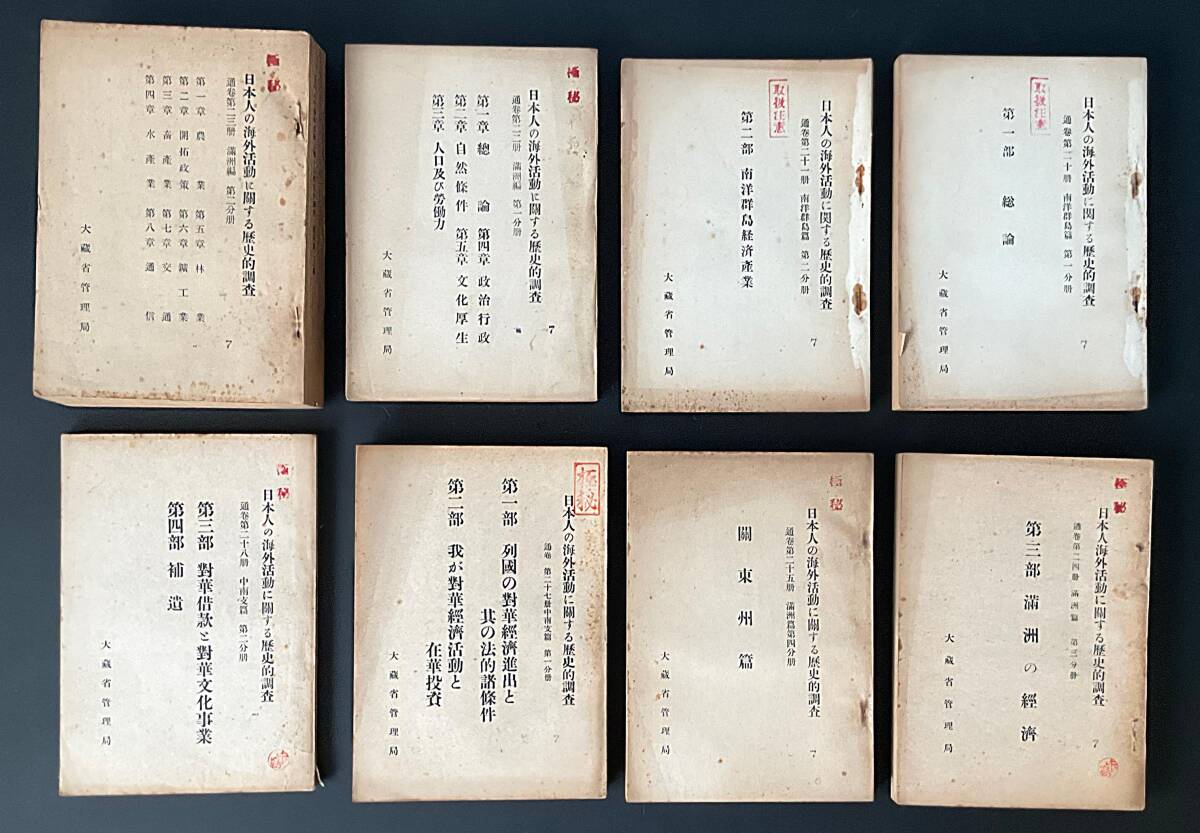 取扱注意
日本人の海外活動に関する歴史的調査
通卷第二十册 南洋群島篇 第一分册
第一部 総論
7
大藏省管理局
取扱注意
日本人の海外活動に関する歴史的調査
通卷第二十一册 南洋群島篇 第二分册
第二部 南洋群島経済産業
7
大藏省管理局
極秘
日本人の海外活動に關する歷史的調査
通卷第二二册 滿洲編 第一分册
第一章 總論 第四章 政治行政
第二章 自然條件 第五章 文化厚生
第三章 人口及び勞働力
7
大藏省管理局
極秘
日本人の海外活動に關する歷史的調査
通卷第二三册 滿洲編 第二分册
第一章 農業 第五章 林業
第二章 開拓政策 第六章 鑛工業
第三章 畜產業 第七章 交通
第四章 水產業 第八章 通信
7
大藏省管理局
極秘
日本人海外活動に關する歴史的調査
通卷第二四册 滿洲篇 第三分册
第三部 滿洲の經濟
7
大藏省管理局
極秘
日本人の海外活動に關する歴史的調査
通卷第二十五册 滿洲篇第四分册
關東州篇
7
6
大藏省管理局
極秘
日本人の海外活動に關する歴史的調査
通卷 第二十七册中南支篇 第一分册
第一部 列國の對華經濟進出と
其の法的諸條件
第二部 我が對華經濟活動と
在華投資
7
大藏省管理局
極秘
日本人の海外活動に關する歴史的調査
通卷第二十八册 中南支篇 第二分册
第三部 對華借款と對華文化事業
第四部 補遺
7
大藏省管理局